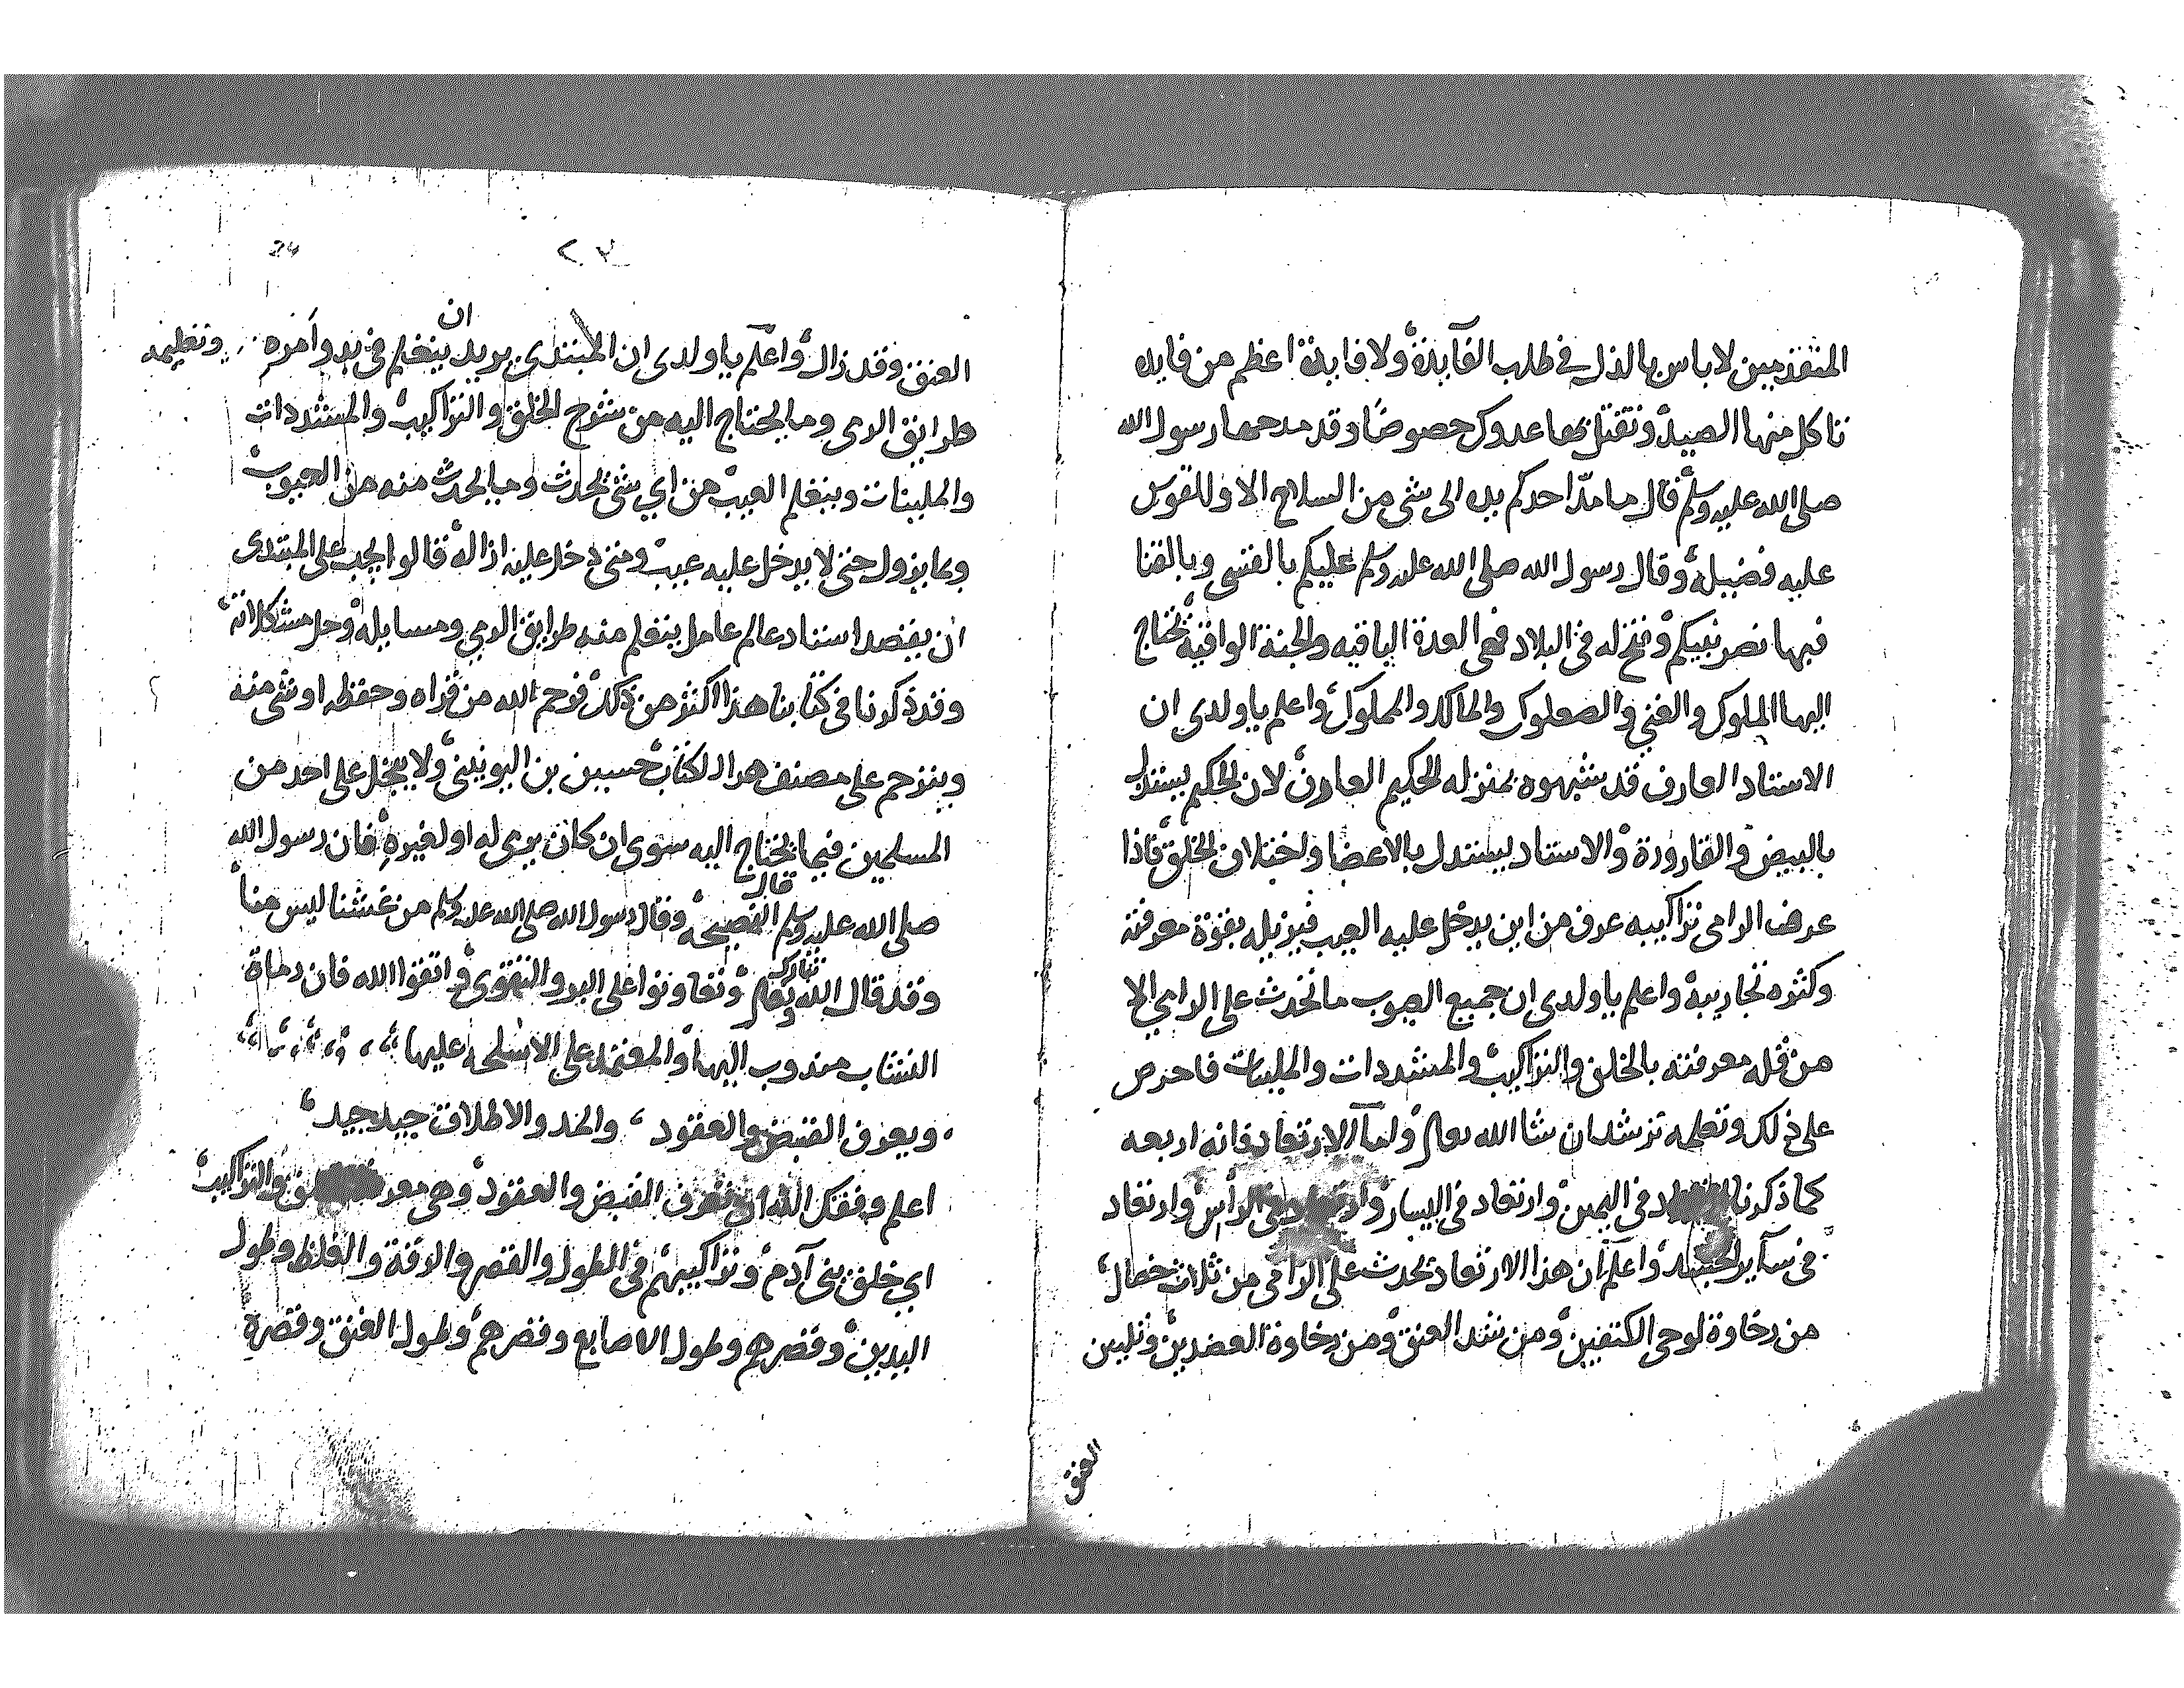 المتقدمين لا باس بالذل في طلب الفايدة ولا فايدة اعظم من فايده
تاكل منها الصيد وتقتل بها عدوك خصوصا وقد مدحها رسول الله
صلى الله عليه وسلم قال ما مدّ احدكم يده الى شي من السلاح الا وللقوس
عليه فضيلة وقال رسول الله صلى الله عليه وسلم عليكم بالقسي وبالقنا
فبها نصر نبيكم وفتح له في البلاد فهي العدة الباقيه والجنة الواقية تحتاج
اليها الملوك والغني والصعلوك والمالك والمملوك واعلم يا ولدي ان
الاستاد العارف قد شبهوه بمنزله الحكيم العارف لان الحكيم يستدل
بالبيض والقارورة والاستاد يستدل بالاعضا واختلاف الخلق فاذا
عرف الرامي تراكيبه عرف من اين يدخل عليه العيب فيزيله بقوة معرفته
وكثره تجاريبه واعلم يا ولدي ان جميع العيوب ما تحدث على الرامي الا
من قله معرفته بالخلق والتراكيب والمشددات والملينات فاحرص
على ذلك وتعلمه ترشد ان شا الله تعالى واما الارتعاد فانه اربعه
كما ذكرنا في اليمين وارتعاد في اليسار في الراس وارتعاد
في ساير الجسد واعلم ان هذا الارتعاد يحدث على الرامي من ثلاث خصال
من رخاوة لوحي الكتفين ومن شد العنق ومن رخاوة العضدين وتليين
العنق
24
العنق وقد زال واعلم يا ولدي ان المبتدي يريد ان يتعلم في بدو امره وتعليمه
طرايق الرمي وما يحتاج اليه من شرح الخلق والتراكيب والمشددات
والملينات ويتعلم العيب من اي شي يحدث وما يحدث منه من العيوب
وبما يزول حتى لا يدخل عليه عيب ومتى دخل عليه ازاله قالوا يجب على المبتدي
ان يقصد استاد عالم عامل يتعلم منه طرايق الرمي ومسايله وحل مشكلاته
وقد ذكرنا في كتابنا هذا اكثر من ذلك فرحم الله من قراه وحفظه او شي منه
ويترحم على مصنف هدا الكتاب حسين بن اليونيني ولا يبخل على احد من
المسلمين فيما يحتاج اليه سوى ان كان يرمي له او لغيره فان رسول الله
صلى الله عليه وسلم قال النصيحه وقال رسول الله صلى الله عليه وسلم من غشنا ليس منا
وقد قال الله تبارك وتعالى وتعاونوا على البر والتقوى واتقوا الله فان رماة
النشاب مندوب اليها والمعتمد على الاسلحه عليها
ويعرف القبض والعقود والمد والاطلاق جيد جيد
اعلم وفقك الله ان تعرف القبض والعقود وهي والتراكيب
اي خلق بني آدم وتراكيبهم في الطول والقصر والدقة والغلظ وطول
اليدين وقصرهم وطول الاصابع وقصرهم وطول العنق وقصره